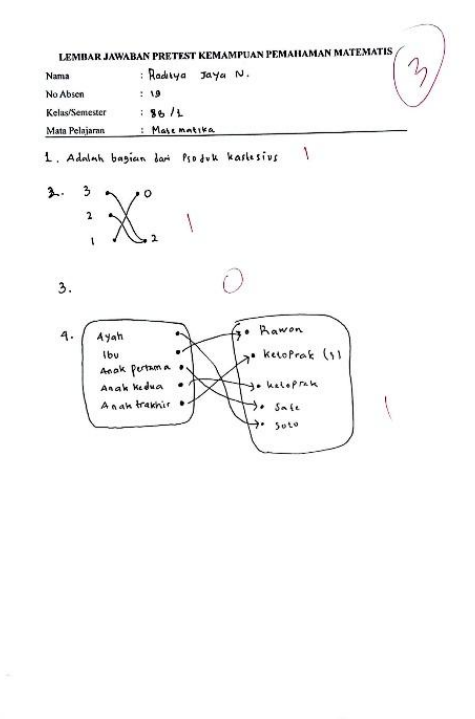 LEMBAR JAWABAN PRETEST KEMAMPUAN PEMAHAMAN MATEMATIS
3
Nama : Raditya Jaya N.
No Absen : 19
Kelas/Semester : 8B /1
Mata Pelajaran : Matematika
1. Adalah bagian dari Produk kartesius 1
2. 3 0
2 1
1 2
3. 0
4. Ayah Rawon
Ibu Ketoprak (1)
Anak pertama
Anak kedua ketoprak
Anak trakhir Sate
Soto
1